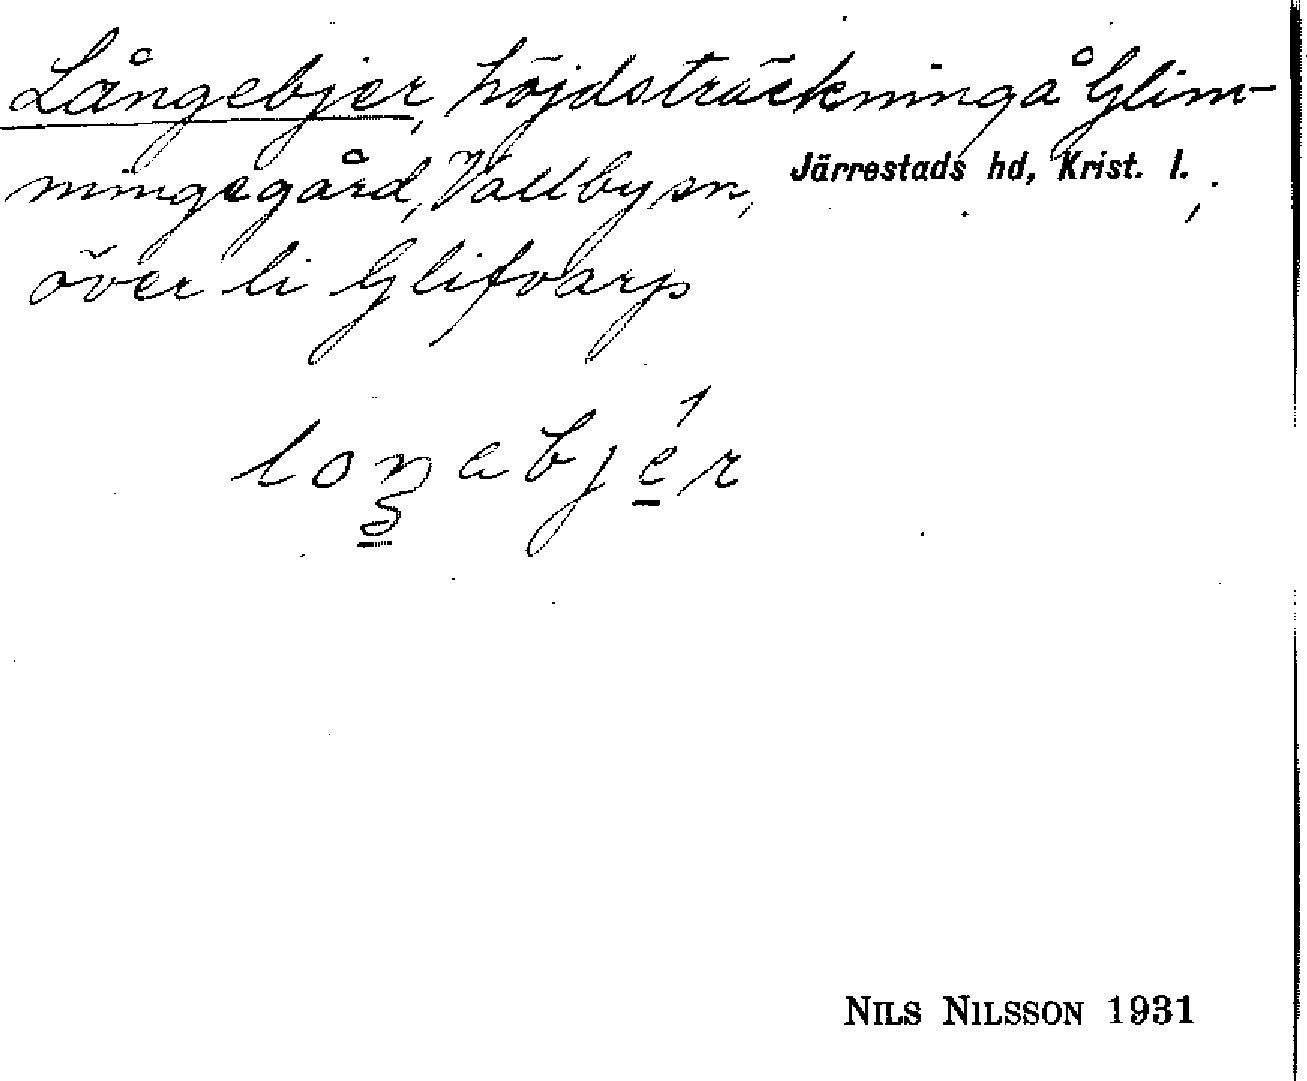 Långebjer, höjdsträckning å Glim-
mingegård, Vallby sn, Järrestads hd, Krist. l.,
över li Glifvarp
loŋabjér
NILS NILSSON 1931